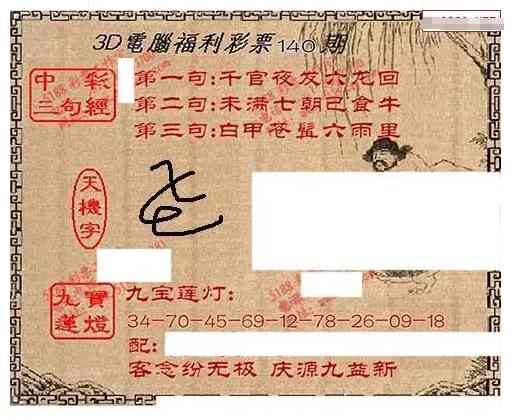 3D電腦福利彩票140期
中彩
三句經
第一句:千官夜发六龙回
第二句:未满七朝已食牛
第三句:白甲苍髯六雨里
天機字
九寶
蓮燈
九宝莲灯:
34-70-45-69-12-78-26-09-18
配:
客念纷无极 庆源九益新